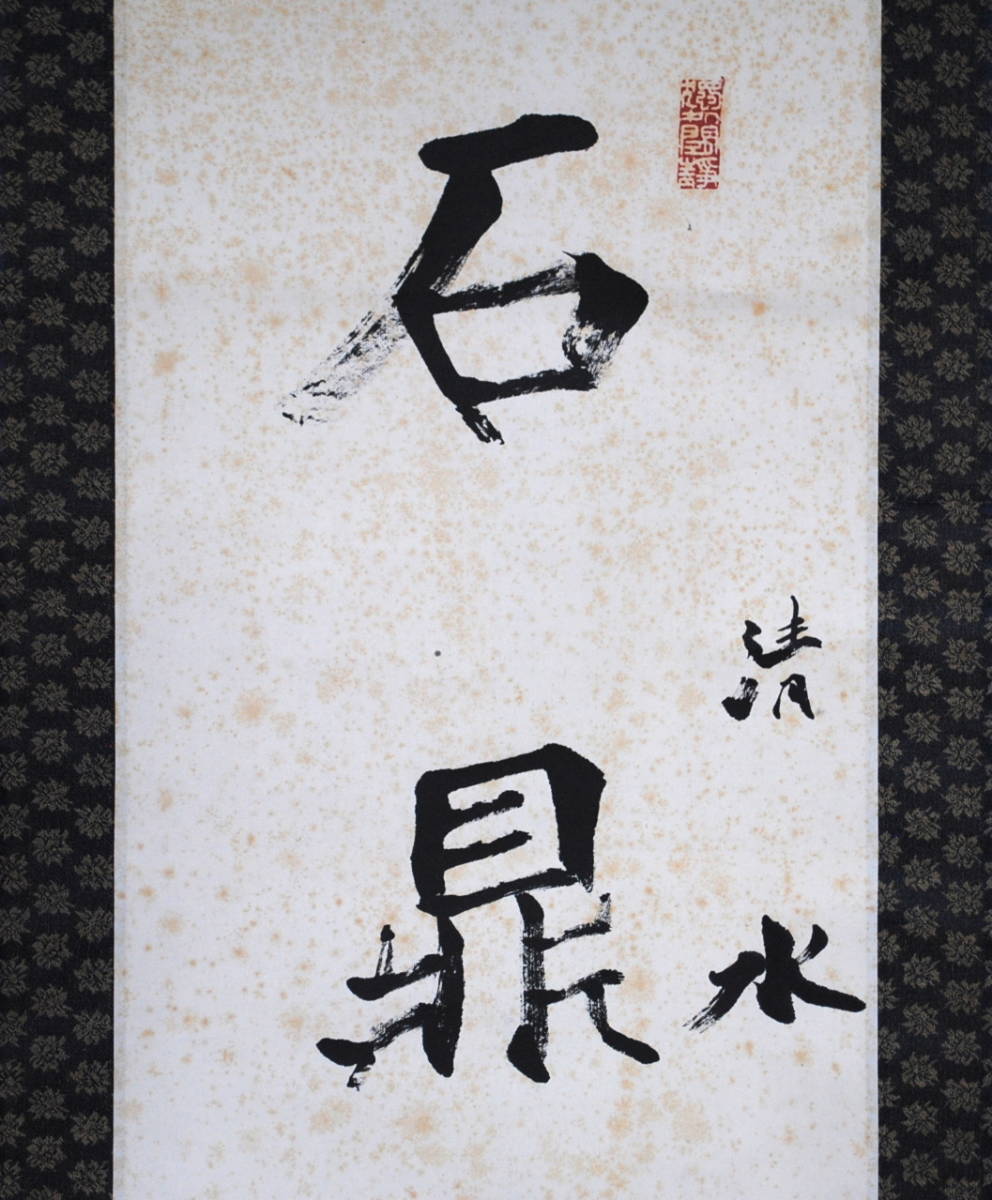 清水
石鼎